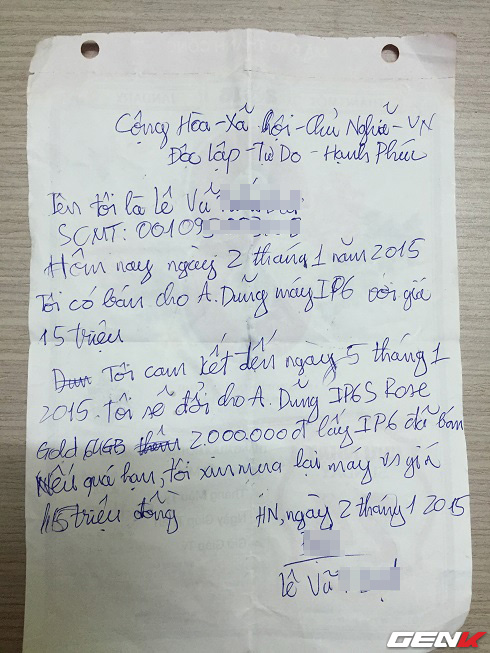 Cộng Hòa - Xã hội - Chủ Nghĩa - VN
Độc lập - Tự Do - Hạnh Phúc
Tên tôi là Lê Vũ
SCMT: 001095
Hôm nay ngày 2 tháng 1 năm 2015
Tôi có bán cho A. Dũng máy IP6 với giá
15 triệu
Tôi cam kết đến ngày 5 tháng 1
2015. tôi sẽ đổi cho A. Dũng IP6S Rose
Gold 64GB thêm 2.000.000đ lấy IP6 đã bán
Nếu quá hạn, tôi xin mua lại máy vs giá
15 triệu đồng
HN, ngày 2 tháng 1 2015
Lê Vũ
GENK